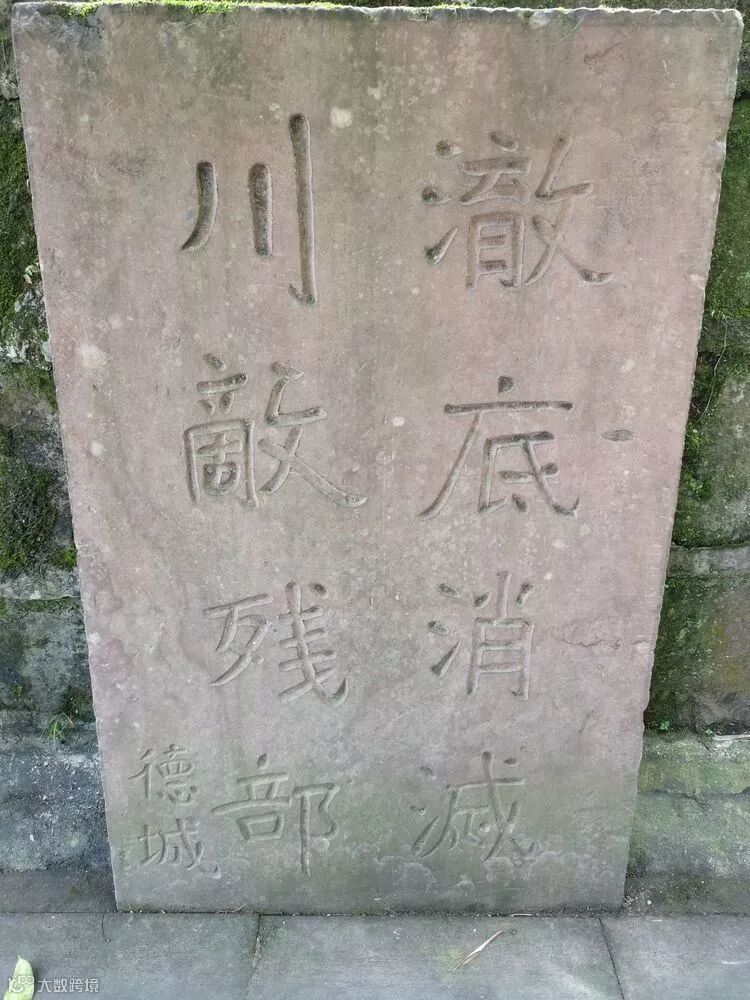 澈底消滅
川敵残部
德城
大数跨境